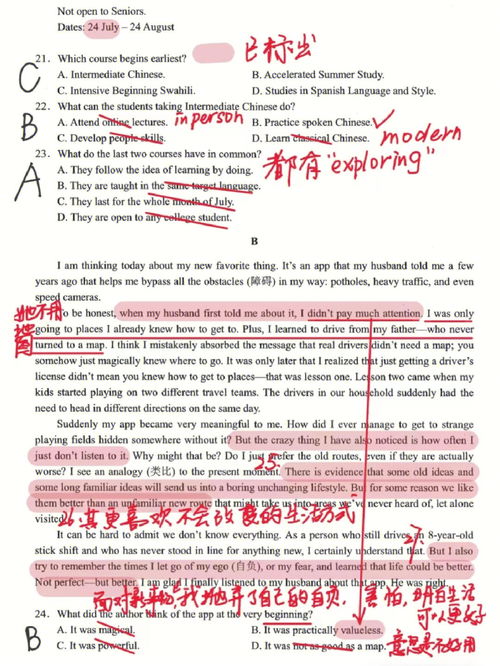 Not open to Seniors.
Dates: 24 July – 24 August
21. Which course begins earliest? 已标出
C A. Intermediate Chinese. B. Accelerated Summer Study.
C. Intensive Beginning Swahili. D. Studies in Spanish Language and Style.
22. What can the students taking Intermediate Chinese do?
B A. Attend online lectures. in person B. Practice spoken Chinese. ✓
C. Develop people skills. D. Learn classical Chinese. modern
23. What do the last two courses have in common? 都有“exploring”
A A. They follow the idea of learning by doing.
B. They are taught in the same target language.
C. They last for the whole month of July.
D. They are open to any college student.
B
I am thinking today about my new favorite thing. It's an app that my husband told me a few
years ago that helps me bypass all the obstacles (障碍) in my way: potholes, heavy traffic, and even
speed cameras.
她不用 To be honest, when my husband first told me about it, I didn't pay much attention. I was only
going to places I already knew how to get to. Plus, I learned to drive from my father—who never
turned to a map. I think I mistakenly absorbed the message that real drivers didn't need a map; you
somehow just magically knew where to go. It was only later that I realized that just getting a driver's
license didn't mean you knew how to get to places—that was lesson one. Lesson two came when my
kids started playing on two different travel teams. The drivers in our household suddenly had the
need to head in different directions on the same day.
Suddenly my app became very meaningful to me. How did I ever manage to get to strange
playing fields hidden somewhere without it? But the crazy thing I have also noticed is how often I
just don't listen to it. Why might that be? Do I just prefer the old routes, even if they are actually
worse? I see an analogy (类比) to the present moment. 25. There is evidence that some old ideas and
some long familiar ideas will send us into a boring unchanging lifestyle. But for some reason we like
them better than an unfamiliar new route that might take us into areas we've never heard of, let alone
visited. 26. 其更喜欢不会改变的生活方式
It can be hard to admit we don't know everything. As a person who still drives an 8-year-old
stick shift and who has never stood in line for anything new, I certainly understand that. 27. But I also
try to remember the times I let go of my ego (自负), or my fear, and learned that life could be better.
Not perfect—but better. I am glad I finally listened to my husband about that app. He was right.
面对新事物,我抛弃了自己的自负,害怕,明白生活
可以更好
24. What did the author think of the app at the very beginning?
B A. It was magical. B. It was practically valueless.
C. It was powerful. D. It was not as good as a map. 意思是不好用